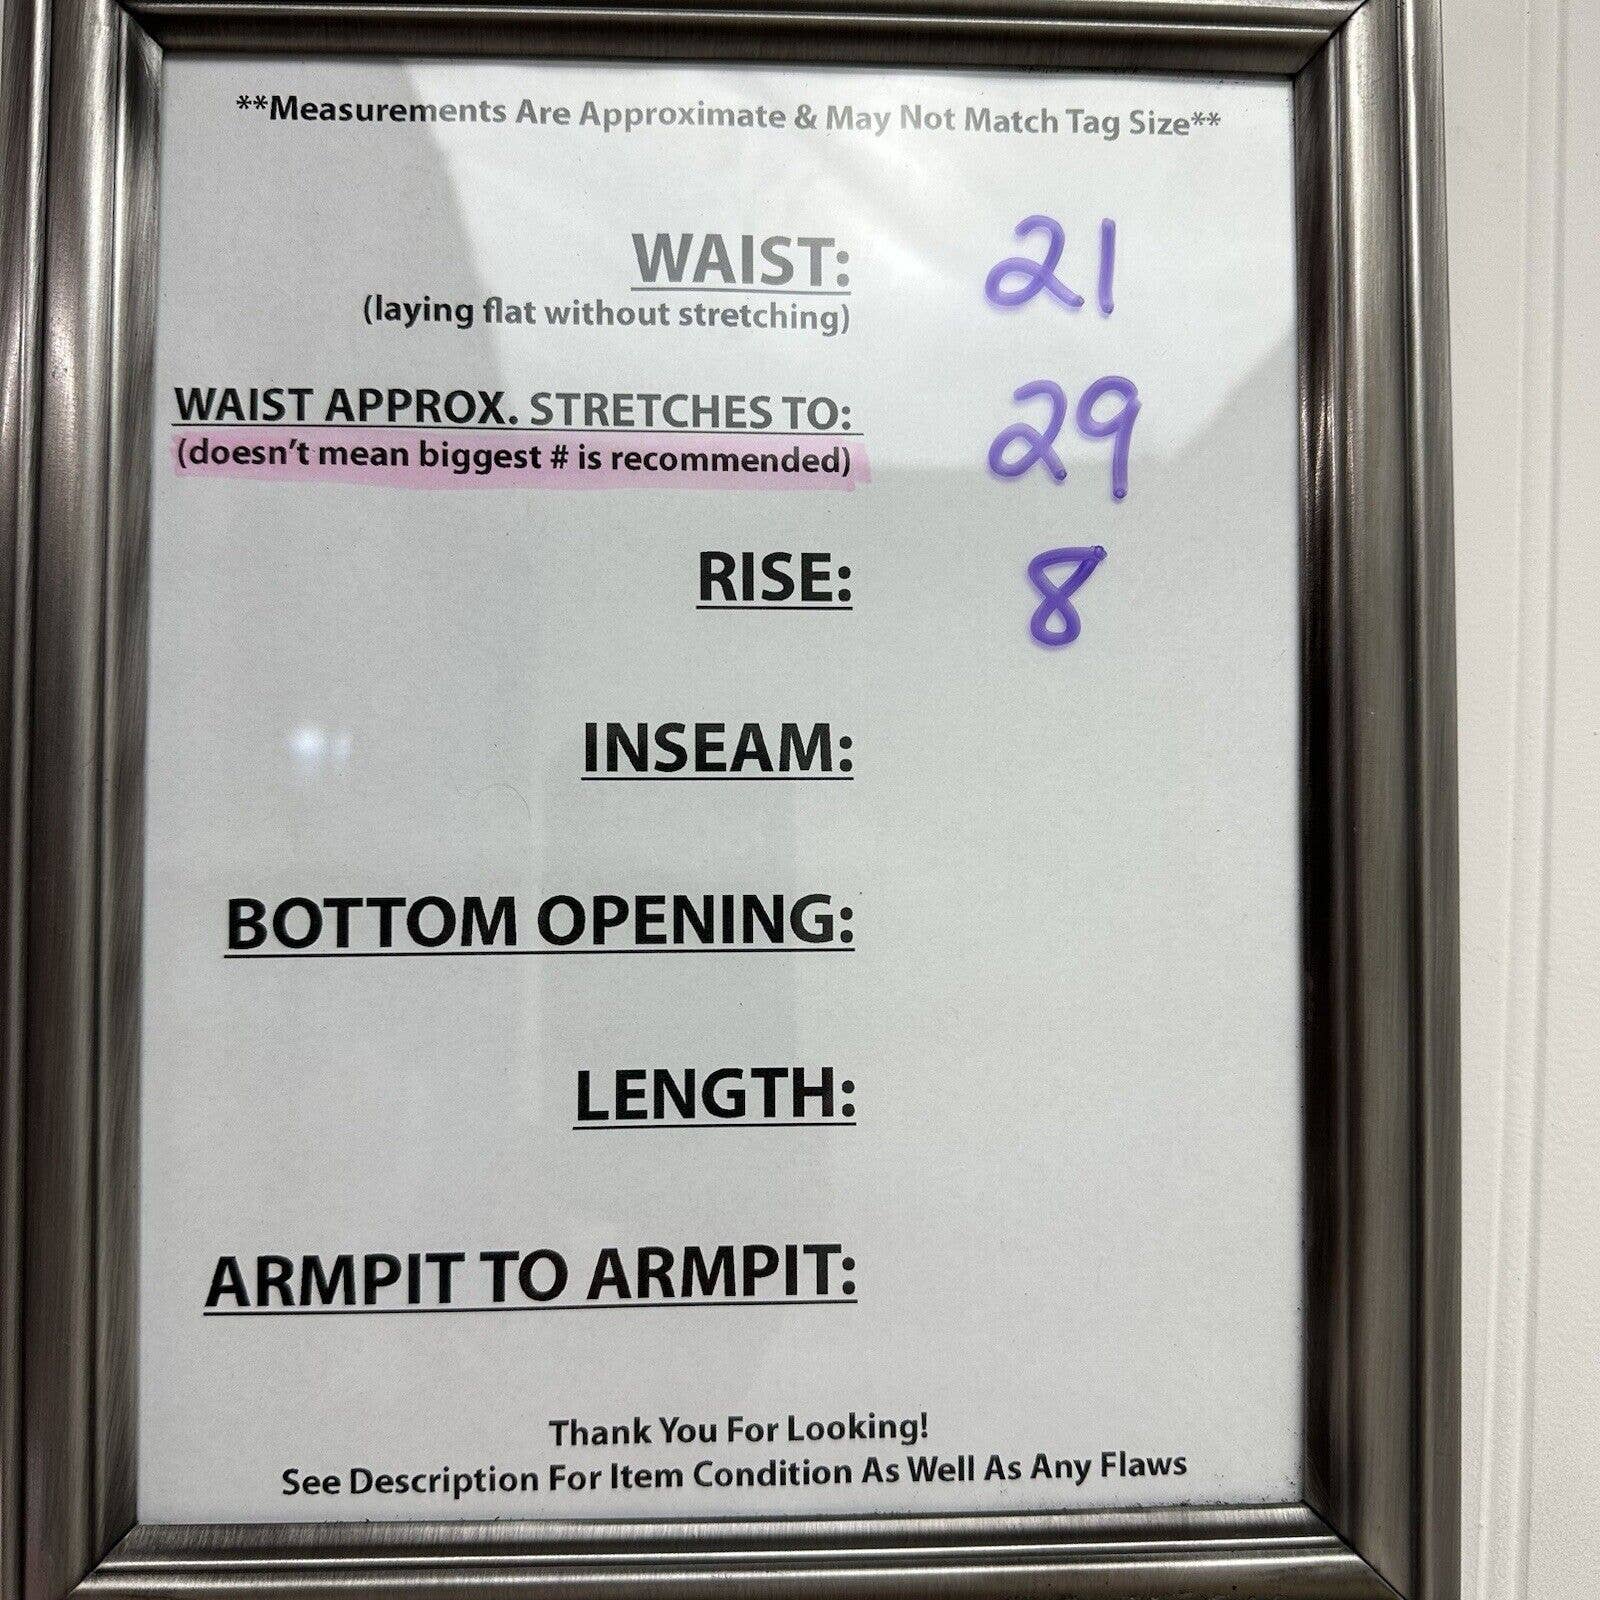 **Measurements Are Approximate & May Not Match Tag Size**
WAIST: 21
(laying flat without stretching)
WAIST APPROX. STRETCHES TO: 29
(doesn't mean biggest # is recommended)
RISE: 8
INSEAM:
BOTTOM OPENING:
LENGTH:
ARMPIT TO ARMPIT:
Thank You For Looking!
See Description For Item Condition As Well As Any Flaws